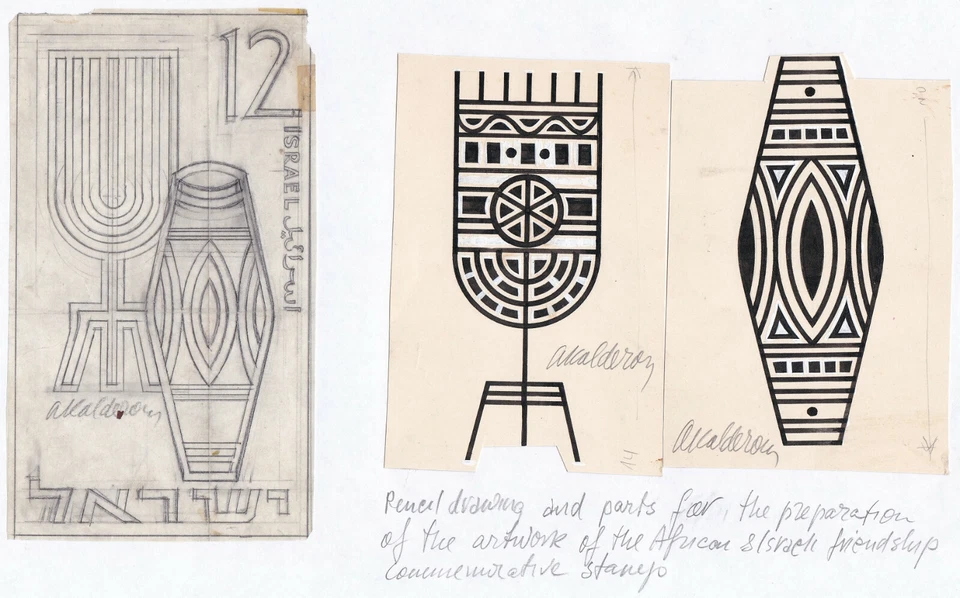 12
ISRAEL اسرائيل
AKalderon
ישראל
AKalderon
14
AKalderon
Pencil drawing and parts for the preparation
of the artwork of the African & Israeli friendship
Commemorative stamp